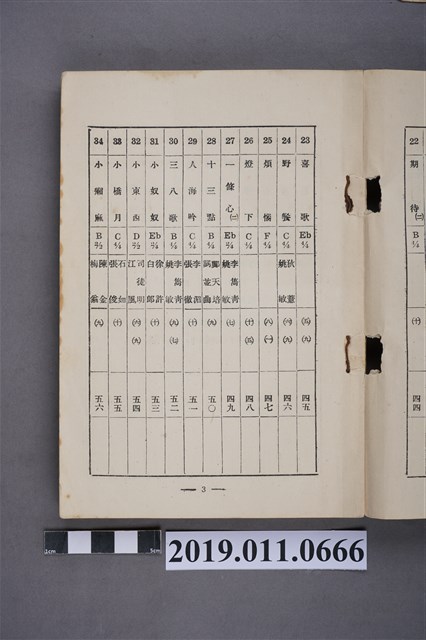 22 期待(二) C 4/4 (十) 四四
23 喜歌 Eb 4/4 (四)(九) 四五
24 野餐 C 4/4 姚敏 (四)(九) 四六
25 煩惱 F 4/4 (八)(一) 四七
26 燈下 C 4/4 (十)(四) 四八
27 一條心(二) Eb 4/4 李雋青 姚敏 (七) 四九
28 十三點 B 2/4 鄭天培 (六) 五〇
29 人海吟 C 4/4 李湄 張徹 (十) 五一
30 三八歌 B 4/4 李雋青 姚敏 (九)(七) 五二
31 小奴奴 Eb 4/4 徐訏 白郎 (十) 五三
32 小東西 D 2/2 司徒明 江風 (六)(九) 五四
33 小橋月 C 4/4 石如 張俊 (十) 五五
34 小癩麻 B 2/2 陳金 梅翁 (九) 五六
— 3 —
2cm
5cm
2019.011.0666